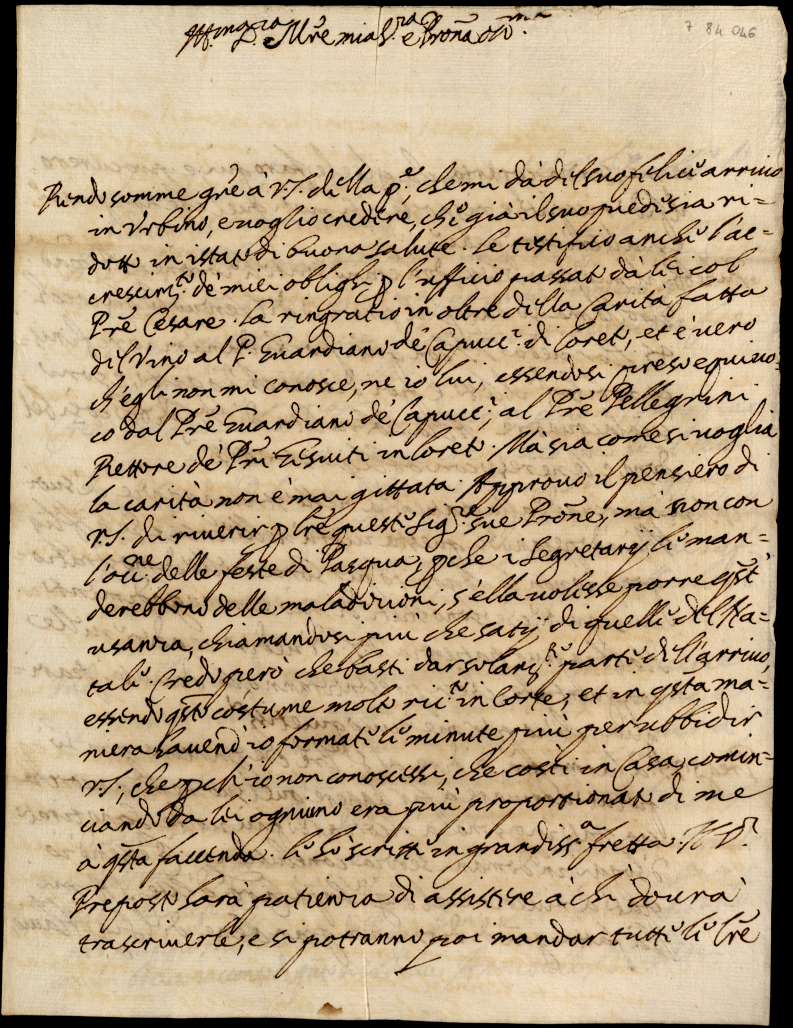 7 84 046
Ill.ma D. Mr̃e mia S.ra e Proña oss.ma
Rendo somme gr̃e à V.S. della p.te, che mi dà del suo felice arrivo
in Urbino, e voglio credere, che già il suo piede sia ri=
dotto in istato di buona salute. Le testifico anche l'ac=
crescim.to de' miei oblighi p l'ufficio passato dà lei col
Pr̃e Cesare. La ringratio in oltre della Carità fatta
del Vino al P. Guardiano de' Capucc.i di Loreto, et è vero
ch'egli non mi conosce, ne io lui, essendosi preso equivo=
co dal Pr̃e Guardiano de' Capucc.i, al Pr̃e Pellegrini
Rettore de' Pr̃i Giesuiti in Loreto. Mà sia come si voglia
la carità non è mai gittata. Approvo il pensiero di
V.S. di riverir p lr̃e queste Sig.re sue Prõne, mà non con
l'occ.ne delle feste di Pasqua, pche i Segretarij le man=
derebbono delle maladizioni, s'ella volesse porre q̃sta
usanza, chiamandosi più che satij di quelle del Na=
tale. Credo però che basti dar solam.te parte dell'arrivo,
essendo q̃sto costume molto ric.to in Corte, et in q̃sta ma=
niera havend'io formate le minute più per ubbidir
V.S., che pch'io non conoscessi, che costì in Casa, comin=
ciando da lei ogniuno era più proportionato di me
à q̃sta facenda. Le hò scritte in grandiss.a fretta. Il S.r
Preposto harà patienza di assistere à chi dourà
trascriverle, e si potranno poi mandar tutte le lr̃e